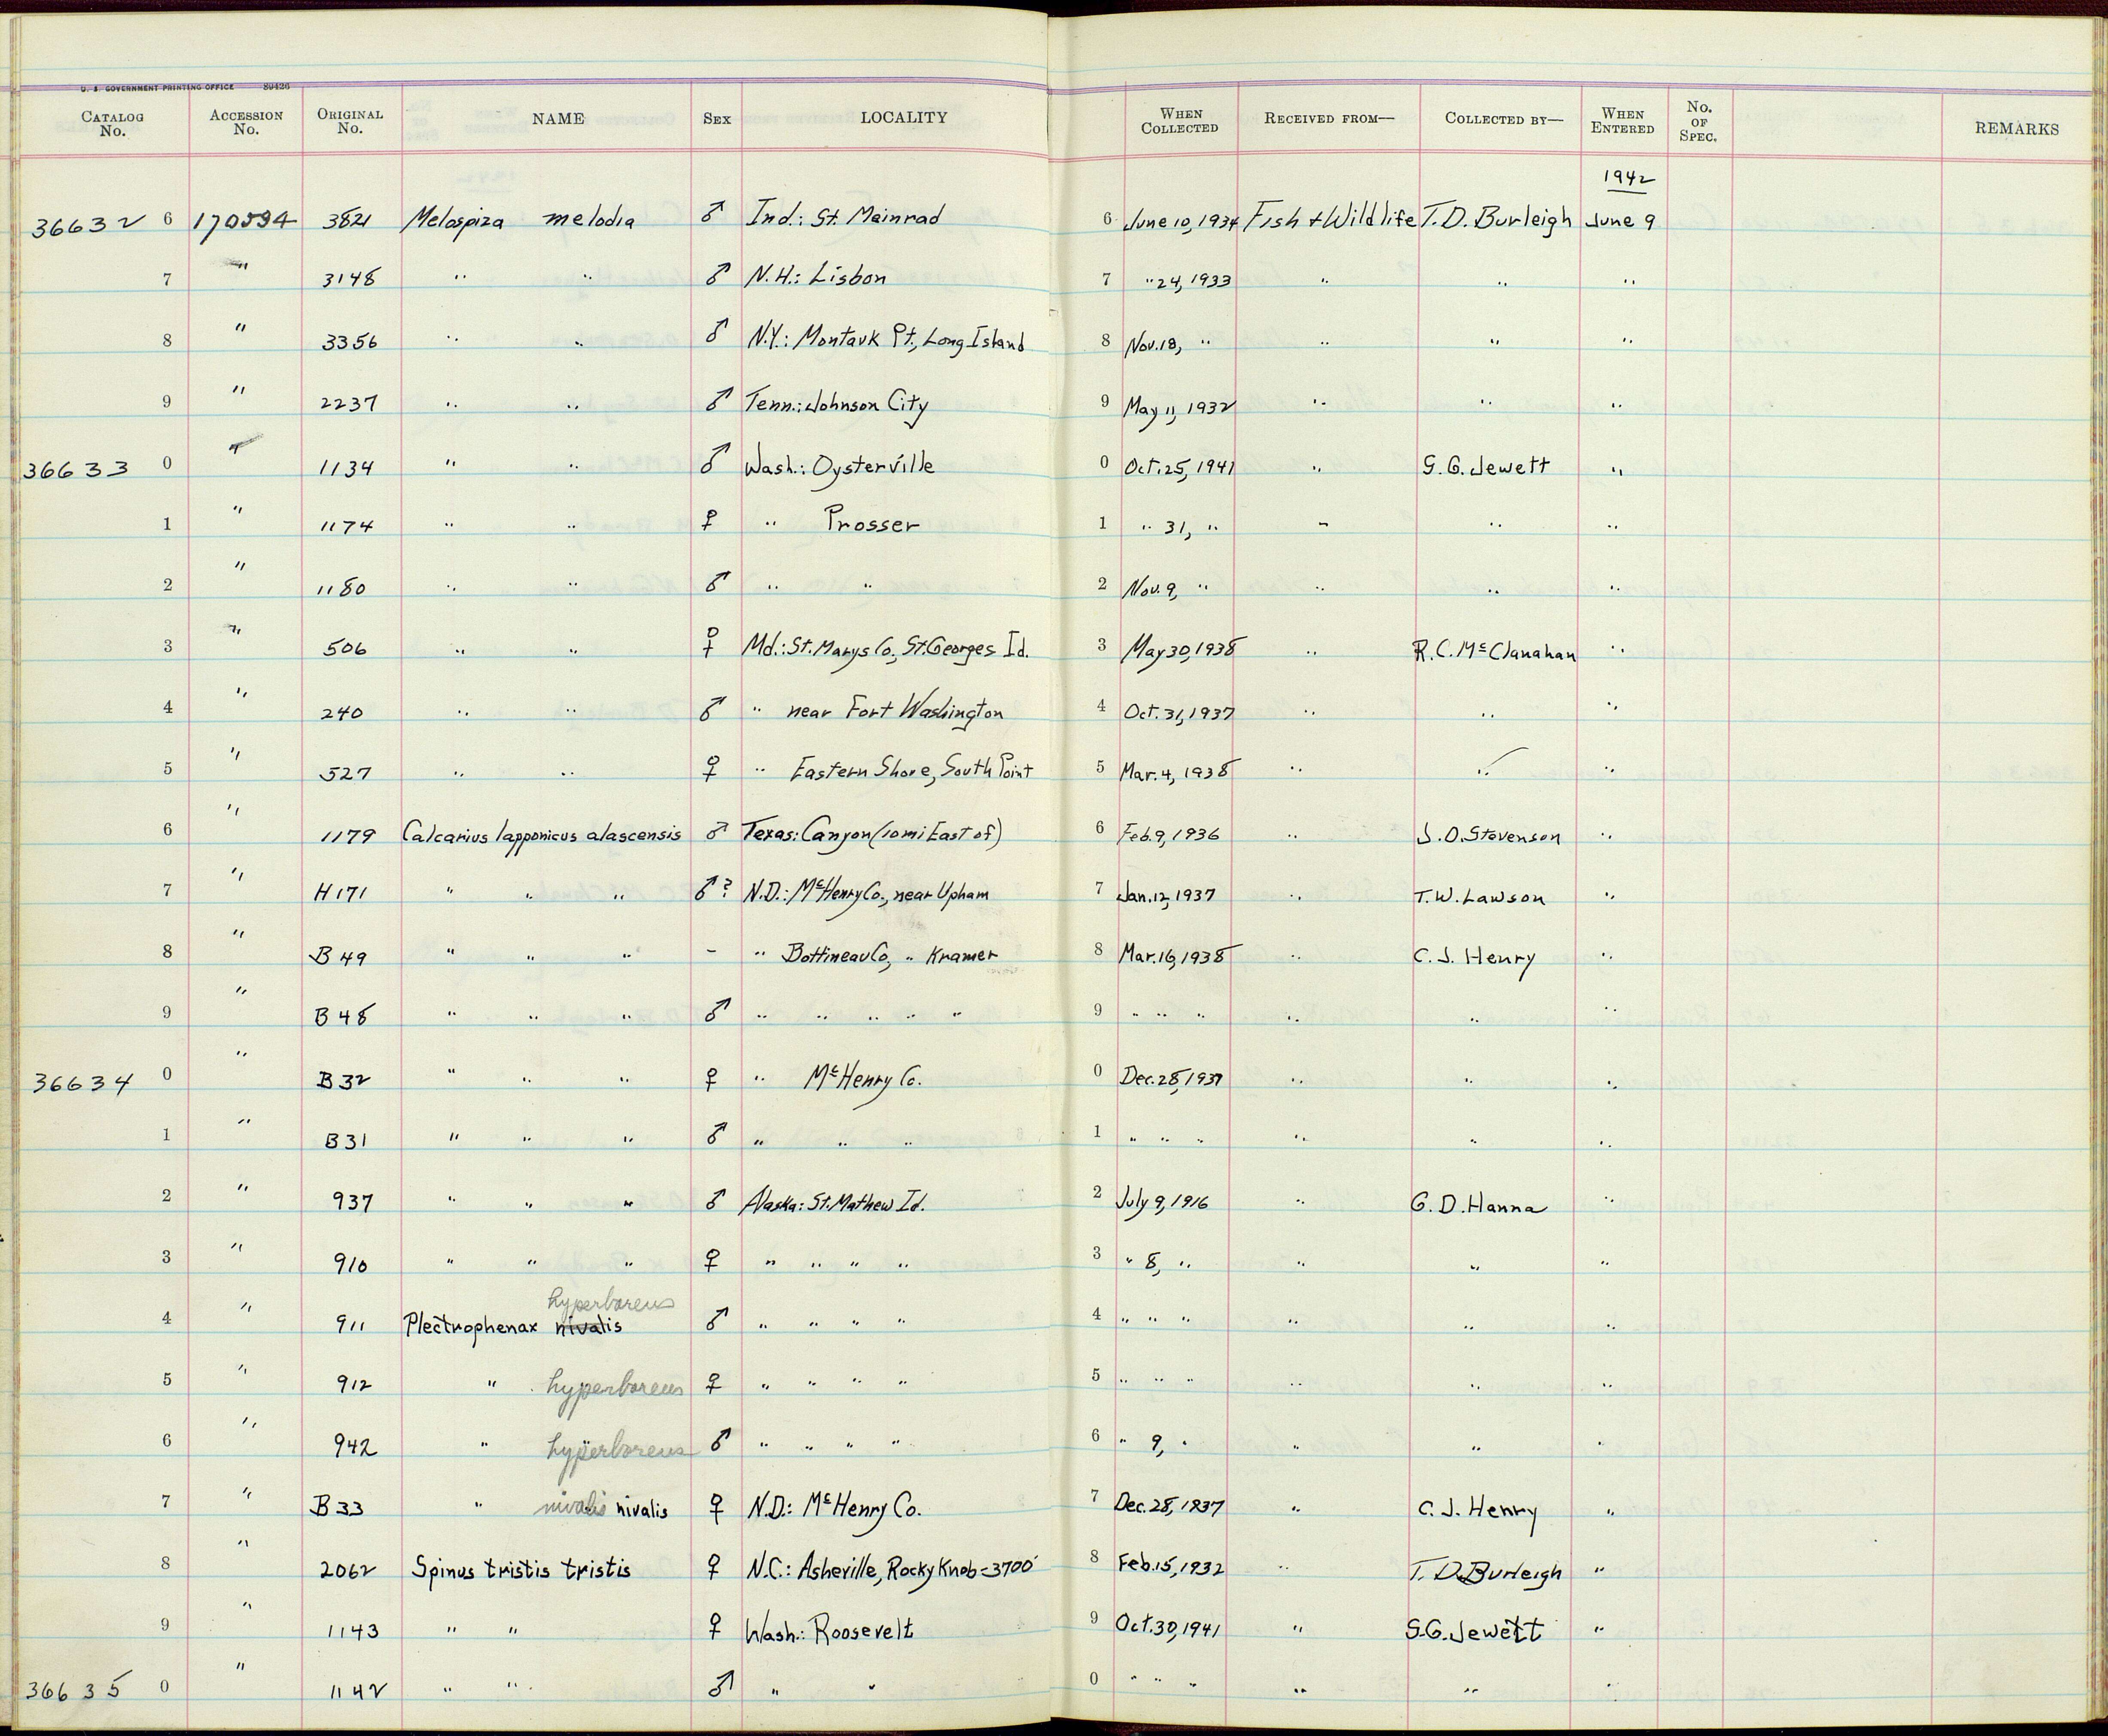 U. S. GOVERNMENT PRINTING OFFICE 89426
CATALOG No. ACCESSION No. ORIGINAL No. NAME SEX LOCALITY WHEN COLLECTED RECEIVED FROM— COLLECTED BY— WHEN ENTERED No. OF SPEC. REMARKS
1942
36632 6 170594 3821 Melospiza melodia ♂ Ind.: St. Meinrad 6 June 10, 1934 Fish + Wildlife T. D. Burleigh June 9
7 " 3148 " " ♂ N.H.: Lisbon 7 " 24, 1933 " " "
8 " 3356 " " ♂ N.Y.: Montauk Pt., Long Island 8 Nov. 18, " " " "
9 " 2237 " " ♂ Tenn.: Johnson City 9 May 11, 1932 " " "
36633 0 " 1134 " " ♂ Wash.: Oysterville 0 Oct. 25, 1941 " S. G. Jewett "
1 " 1174 " " ♀ " Prosser 1 " 31, " " " "
2 " 1180 " " ♂ " " 2 Nov. 9, " " " "
3 " 506 " " ♀ Md.: St. Marys Co., St. Georges Id. 3 May 30, 1938 " R. C. McClanahan "
4 " 240 " " ♂ " near Fort Washington 4 Oct. 31, 1937 " " "
5 " 527 " " ♀ " Eastern Shore, South Point 5 Mar. 4, 1938 " " "
6 " 1179 Calcarius lapponicus alascensis ♂ Texas: Canyon (10 mi East of) 6 Feb. 9, 1936 " J. O. Stevenson "
7 " H 171 " " " ♂? N.D.: McHenry Co., near Upham 7 Jan. 12, 1937 " T. W. Lawson "
8 " B 49 " " " – " Bottineau Co., " Kramer 8 Mar. 16, 1938 " C. J. Henry "
9 " B 48 " " " ♂ " " " " " 9 " " " " " "
36634 0 " B 32 " " " ♀ " McHenry Co. 0 Dec. 28, 1937 " " "
1 " B 31 " " " ♂ " " " 1 " " " " " "
2 " 937 " " " ♂ Alaska: St. Mathew Id. 2 July 9, 1916 " G. D. Hanna "
3 " 910 " " " ♀ " " " " 3 " 8, " " " "
hyperboreus
4 " 911 Plectrophenax nivalis ♂ " " " " 4 " " " " " "
5 " 912 " hyperboreus ♀ " " " " 5 " " " " " "
6 " 942 " hyperboreus ♂ " " " " 6 " 9, " " " "
7 " B 33 " nivalis nivalis ♀ N.D.: McHenry Co. 7 Dec. 28, 1937 " C. J. Henry "
8 " 2062 Spinus tristis tristis ♀ N.C.: Asheville, Rocky Knob = 3700' 8 Feb. 15, 1932 " T. D. Burleigh "
9 " 1143 " " ♀ Wash.: Roosevelt 9 Oct. 30, 1941 " S. G. Jewett "
36635 0 " 1142 " " ♂ " " 0 " " " " " "